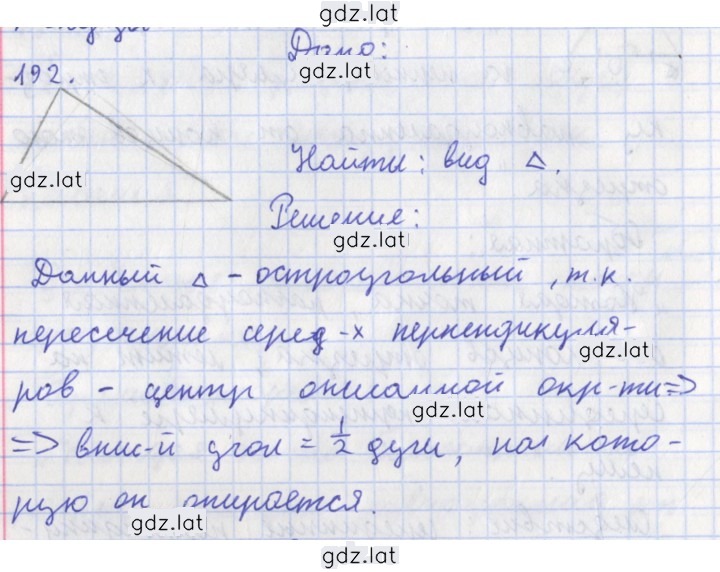 gdz.lat
Дано:
192.
gdz.lat
Найти: вид Δ.
gdz.lat
Решение:
gdz.lat
Данный Δ – остроугольный, т.к.
пересечение серед-х перпендикуля-
gdz.lat
ров – центр описанной окр-ти =>
gdz.lat
=> впис-й угол = 1/2 дуги, на кото-
рую он опирается.
gdz.lat
gdz.lat